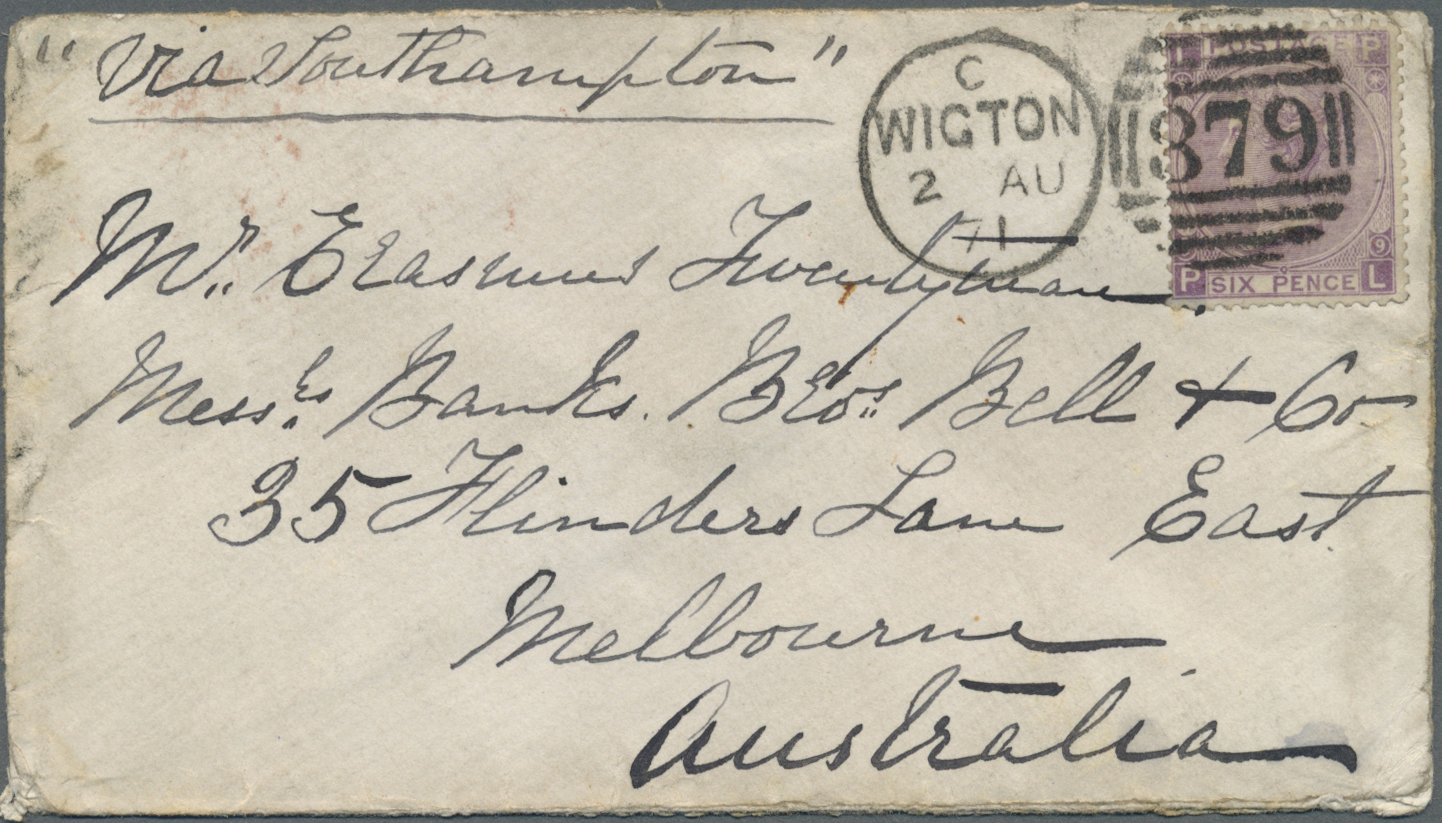 "Via Southampton"
C
WIGTON
2 AU
71
879
L POSTAGE P
9
P SIX PENCE L
Mr. Erasmus Twentyman,
Messrs. Banks. Bros. Bell & Co
35 Flinders Lane East
Melbourne
Australia